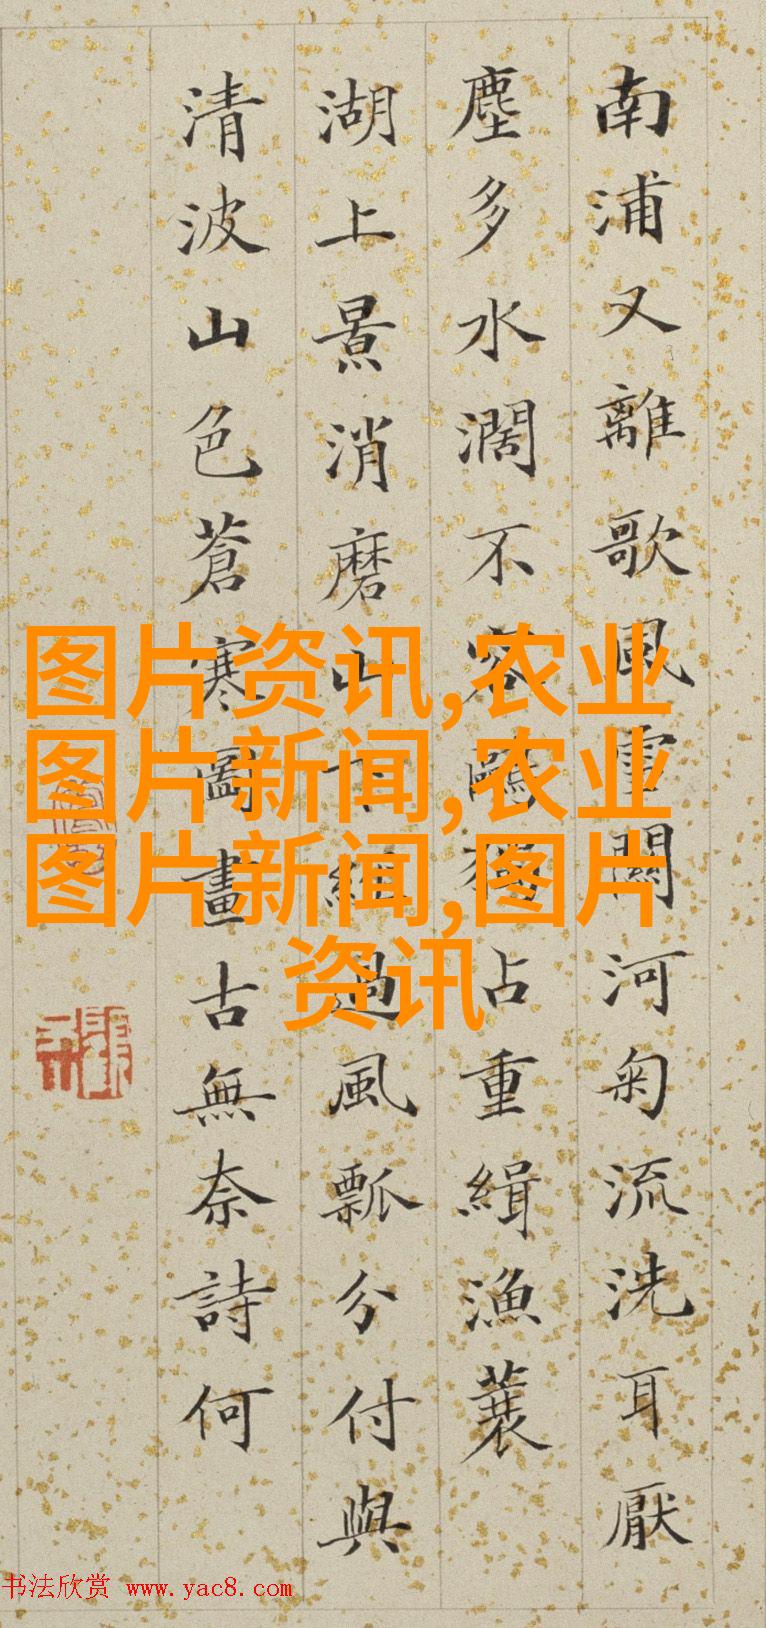 南浦又離歌風雪關河匊流洗耳厭
塵多水濶不容鷗獨占重緝漁蓑
湖上景消磨山下經過風瓢分付與
清波山色蒼寒圖畫古無奈詩何
图片资讯,农业
图片新闻,农业
图片新闻,图片
资讯
书法欣赏 www.yac8.com